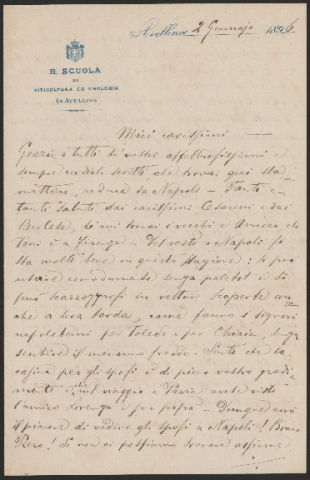 Avellino 2 Gennajo 1896
R. SCUOLA
DI
VITICOLTURA ED ENOLOGIA
IN AVELLINO
Miei carissimi
Grazie a tutti de' vostri affettuosissimi e
sempre cordiali scritti, che trovai questa
mattina, reduce da Napoli – Tante e
tante saluti dai carissimi Cesareni e dai
Berlese, sì noi trovai i vecchi e Amico, che
Toni è a Firenze – Del resto a Napoli si
sta molto bene in questa stagione: si può
uscire comodamente senza paletot e si
può scarrozzarsi in vetture scoperte an
che a sera tarda, come fanno i signori
napoletani per Toledo e per Chiaia, senza
sentire il menomo freddo – Sento che la
casina per gli sposi è di pieno vostro gradi
mento e nel viaggio a Pavia avete visto
l'amico Lorenzo e suo papà – Dunque avrò
il piacere di vedere gli sposi a Napoli! Bravo
Piero! Se non ci possiamo trovare assieme